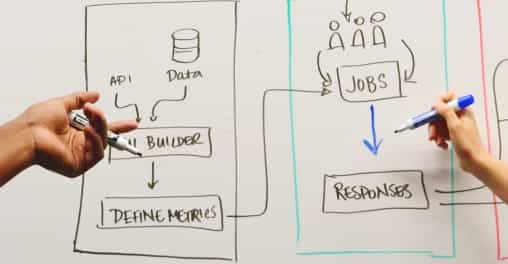 API
Data
BUILDER
DEFINE METRICS
JOBS
RESPONSES